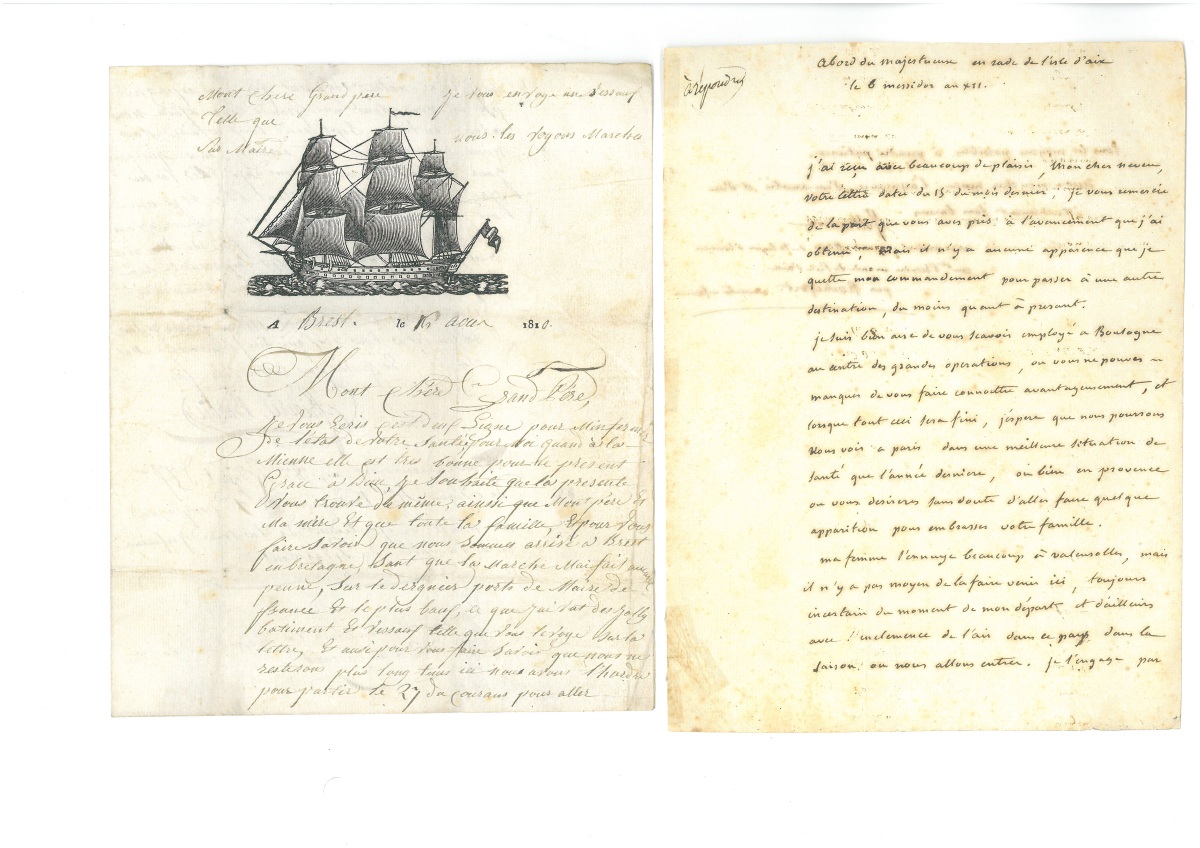 Mont Chere Grand pere je vous envoye un Vessauf
Telle que nous les voyons Marcher
Sur
A Brest. le aoux 1810.
Mont Chère Grand Père,
Je vous Ecris cest deuf Ligne pour Minformer
De l'état de votre Santée pour Moi quand à la
Mienne elle est tres bonne pour le present
Grace à Dieu, Je Souhaite que la presente
Vous trouve du même, ainsi que Mont père Et
Ma mère Et que toute la famille, Et pour Vous
faire Savoir que nous Sommes arrivé à Brest
en bretagne, Sant que la Marche Mai fait aucune
peinne, Sur le dergnier ports de Maire de
france Et le plus bauf, a que jai vat des
batiment Et Vessauf telle que Vous le voye Sur la
lettre, Et ausi pour Vous faire Savoir que nous ne
resterons plus long tems ici nous avons l'hordre
pour partir le 27 du Courans pour aller
à répondre
Abord du majestueuse en rade de l'isle d'aix
le 6 messidor an XII.
j'ai reçu avec beaucoup de plaisir, mon cher neveu,
votre lettre datée du 15 du mois dernier; je vous remercie
de la part que vous aves pris à l'avancement que j'ai
obtenu, mais il n'y a aucune apparence que je
quitte mon commandement pour passer à une autre
destination, du moins quant à present.
je suis bien aise de vous scavoir employé a Boulogne
au centre des grandes operations, ou vous ne pouves
manquer de vous faire connoitre avantageusement, et
lorsque tout ceci sera fini, j'espere que nous pourrons
nous voir a paris dans une meilleure situation de
santé que l'année derniere, ou bien en provence
ou vous desireres sans doute d'aller faire quelque
apparition pour embrasser votre famille.
ma femme s'ennuye beaucoup à valensolles, mais
il n'y a pas moyen de la faire venir ici, toujours
incertain du moment de mon départ, et d'ailleurs
avec l'inclemence de l'air dans ce pays dans la
saison ou nous allons entrer. je l'engage par